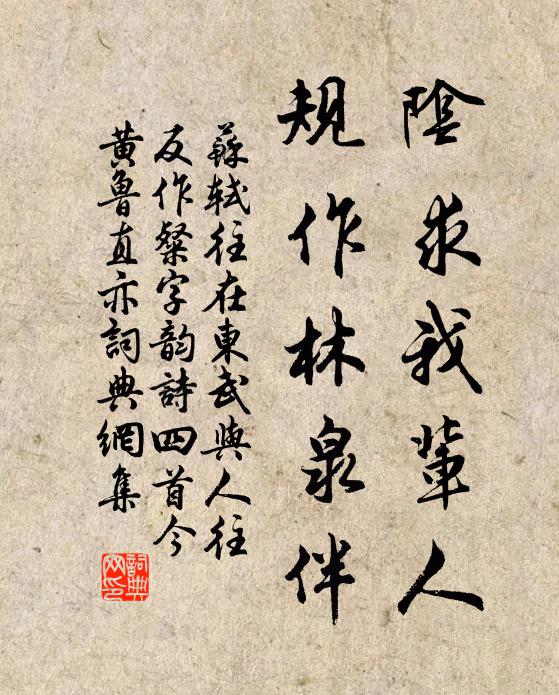 陰求我輩人
規作林泉伴
蘇軾往在東武與人往
反作粲字韵詩四首今
黃魯直亦詞典網集
詞典网印